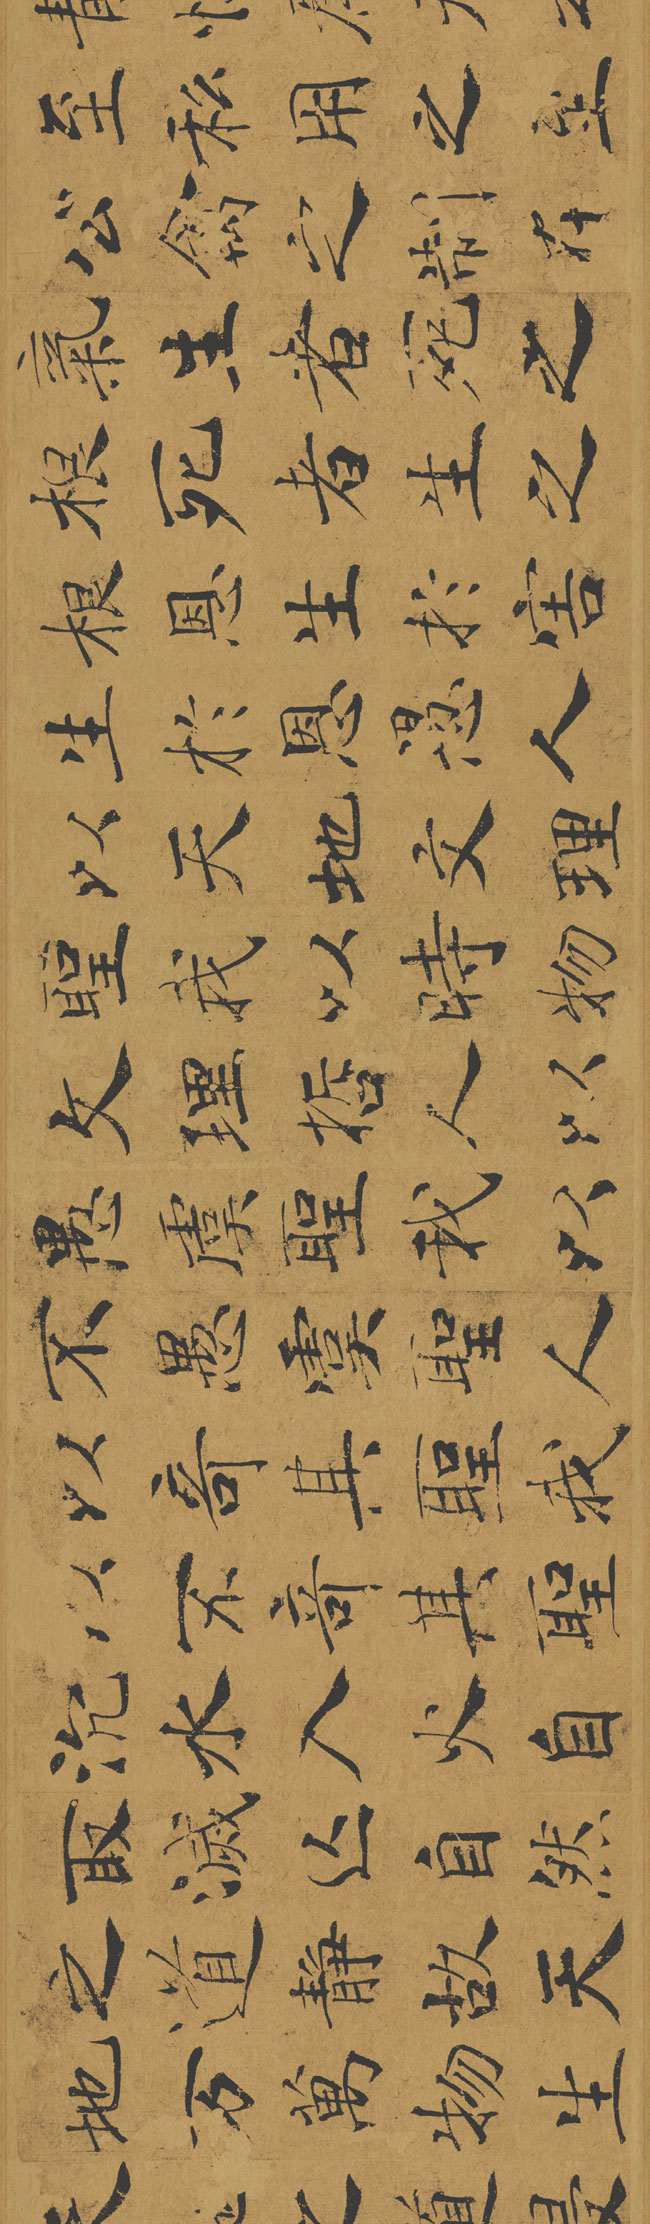 至私用之至
公禽之制在
氣生者死之
根死者生之
根恩生於害
生於恩愚人
以天地文理
聖我以時物
文理哲人以
愚虞聖我以
不愚虞聖人
以奇其聖我
以不奇其聖
沉水入火自
取滅亡自然
之道靜故天
地万萬物生